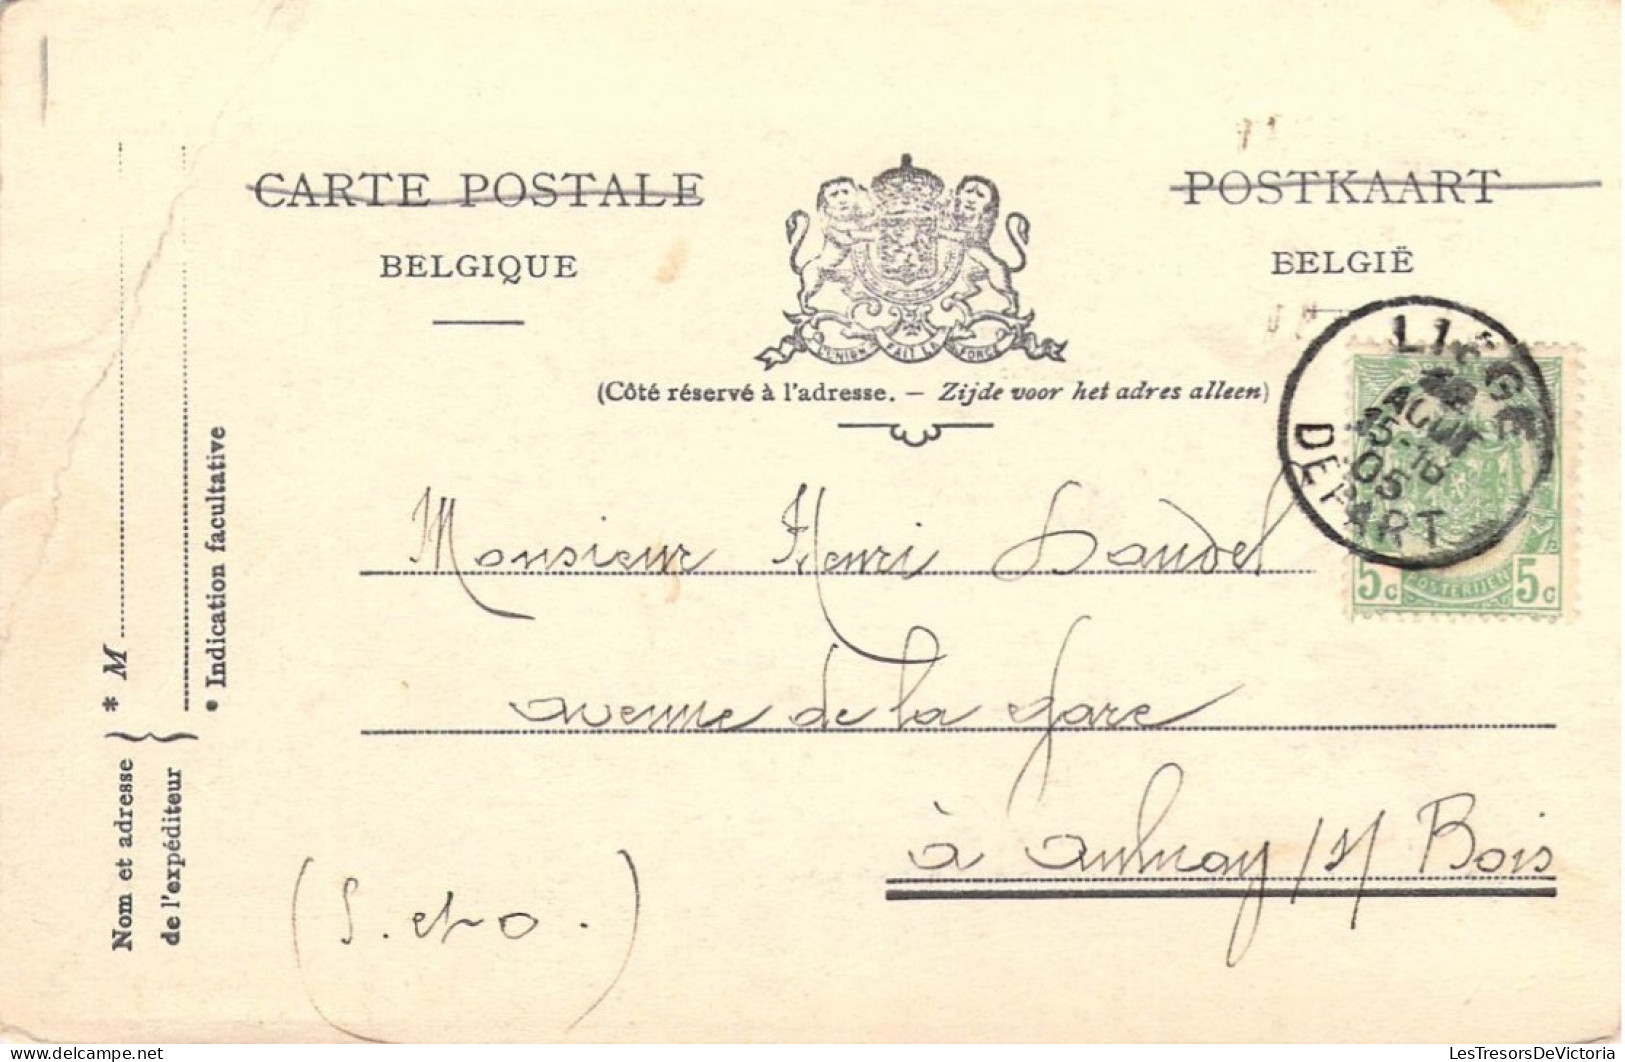 CARTE POSTALE
BELGIQUE
POSTKAART
BELGIË
L'UNION FAIT LA FORCE
(Côté réservé à l'adresse. — Zijde voor het adres alleen)
LIÉGE
AOUT
15-16
05
DEPART
5c POSTERIJEN 5c
Monsieur Henri
avenue de la gare
à Aulnay /s/ Bois
(S. et O.)
* M
* Indication facultative
Nom et adresse
de l'expéditeur
LesTresorsDeVictoria